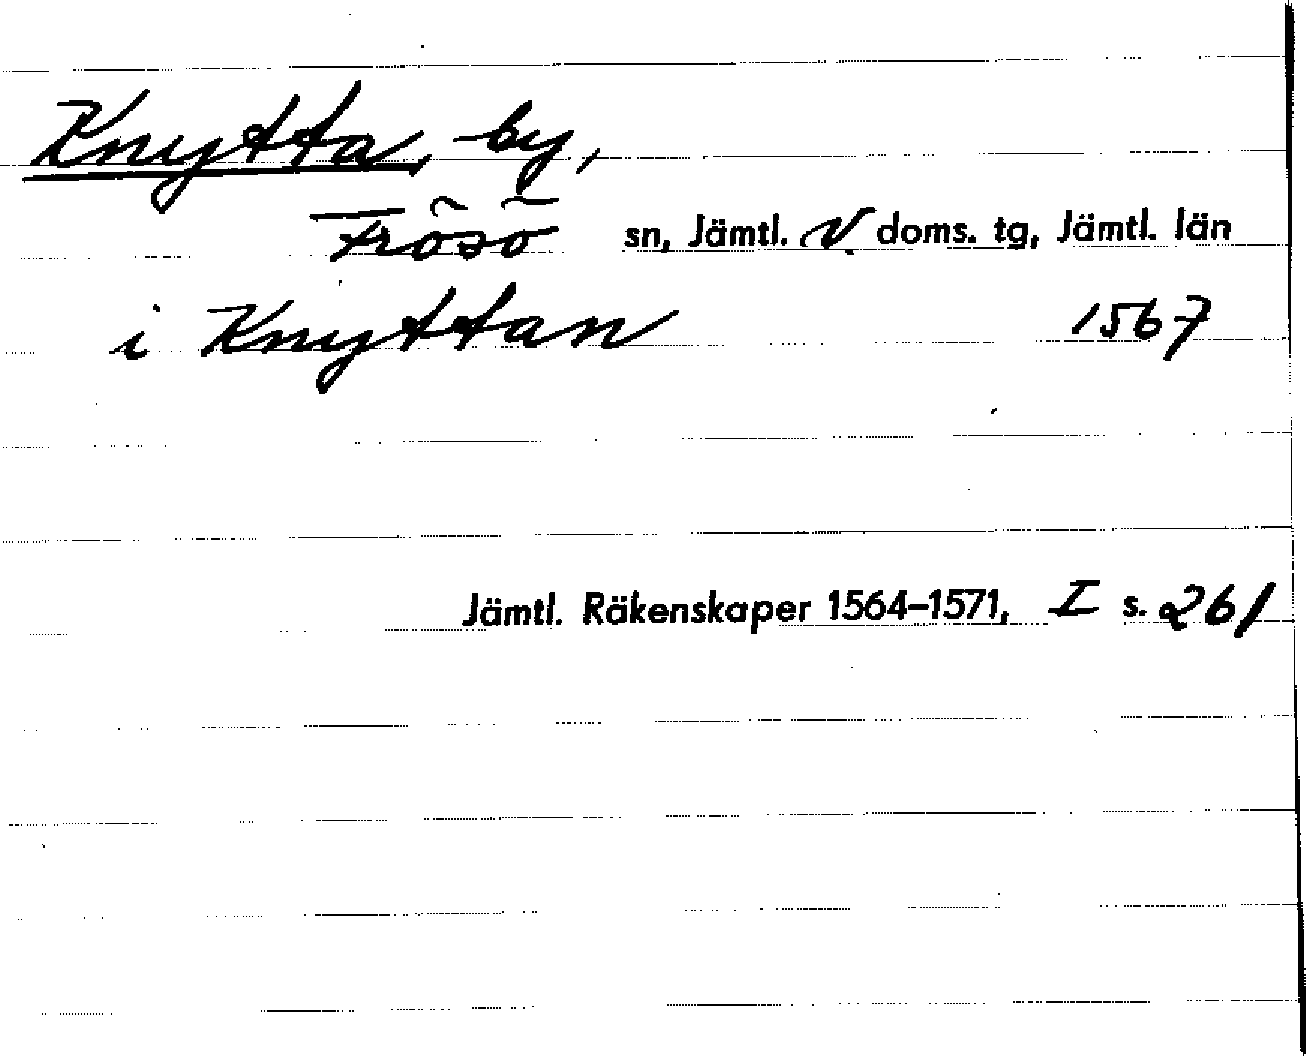 Knytta, by,
Frösö sn, Jämtl. V. doms. tg, Jämtl. län
i Knyttan 1567
Jämtl. Räkenskaper 1564–1571, I s. 261